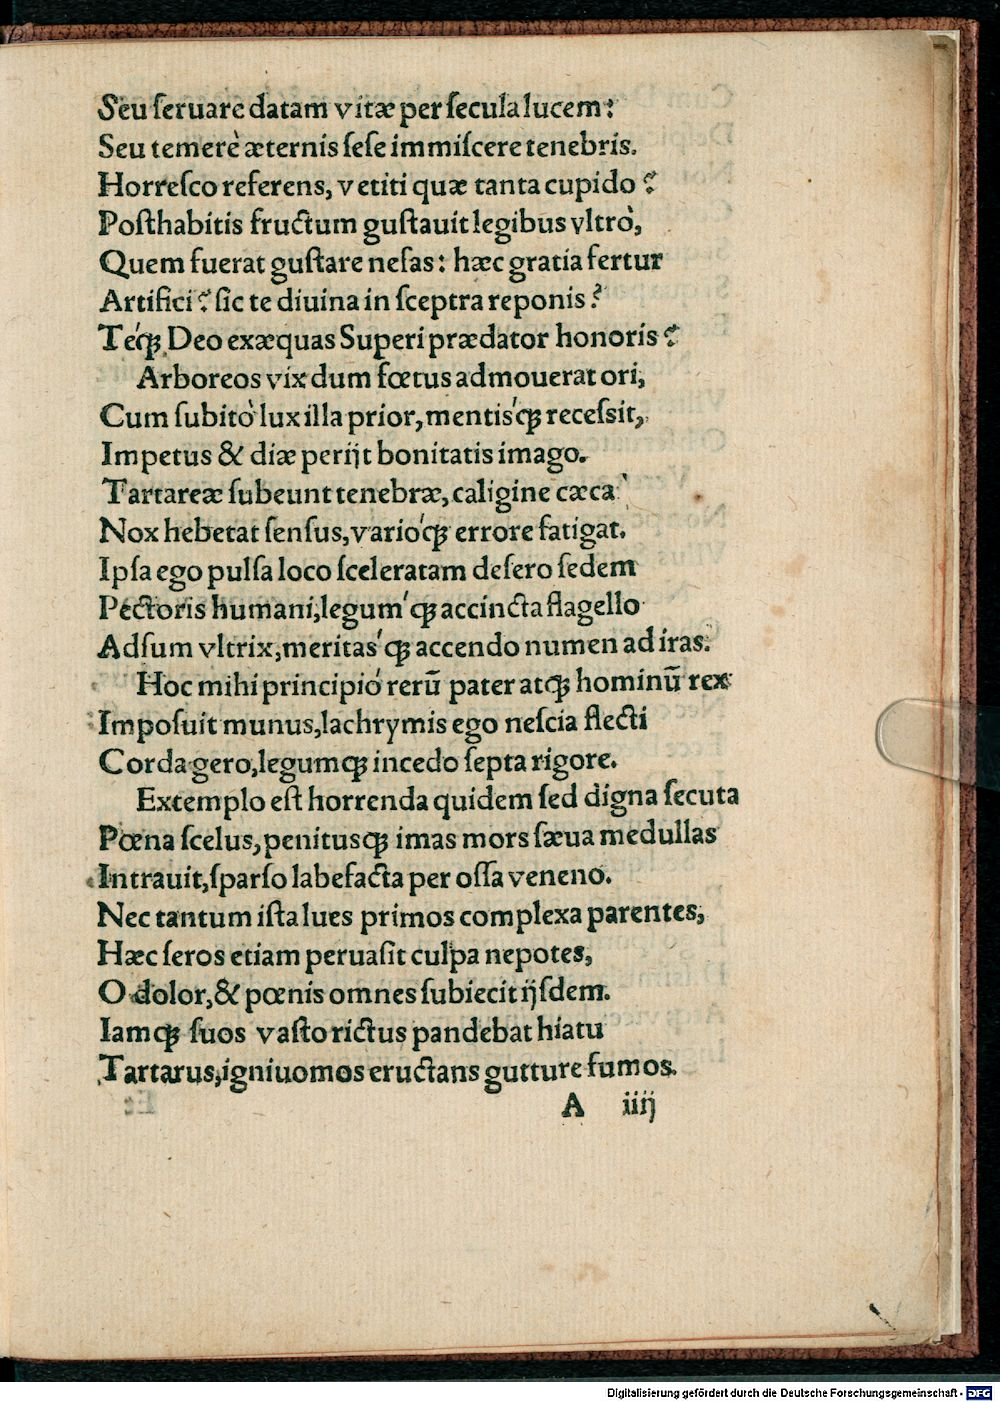 Seu ſeruare datam vitæ per ſecula lucem:
Seu temerè æternis ſeſe immiſcere tenebris.
Horreſco referens, vetiti quæ tanta cupido?
Poſthabitis fructum guſtauit legibus vltrò,
Quem fuerat guſtare nefas: hæc gratia fertur
Artifici? ſic te diuina in ſceptra reponis?
Téqꝫ Deo exæquas Superi prædator honoris?
Arboreos vix dum fœtus admouerat ori,
Cum ſubitò lux illa prior, mentis'qꝫ receſsit,
Impetus & diæ perijt bonitatis imago.
Tartareæ ſubeunt tenebræ, caligine cæca
Nox hebetat ſenſus, vario'qꝫ errore fatigat.
Ipſa ego pulſa loco ſceleratam deſero ſedem
Pectoris humani, legum'qꝫ accincta flagello
Adſum vltrix, meritas'qꝫ accendo numen ad iras.
Hoc mihi principiò rerū pater atqꝫ hominū rex
Impoſuit munus, lachrymis ego neſcia flecti
Corda gero, legumqꝫ incedo ſepta rigore.
Extemplo eſt horrenda quidem ſed digna ſecuta
Pœna ſcelus, penitusqꝫ imas mors ſæua medullas
Intrauit, ſparſo labefacta per oſſa veneno.
Nec tantum iſta lues primos complexa parentes,
Hæc ſeros etiam peruaſit culpa nepotes,
O dolor, & pœnis omnes ſubiecit ijſdem.
Iamqꝫ ſuos vaſto rictus pandebat hiatu
Tartarus, igniuomos eructans gutture fumos.
A iiij
Digitalisierung gefördert durch die Deutsche Forschungsgemeinschaft - DFG